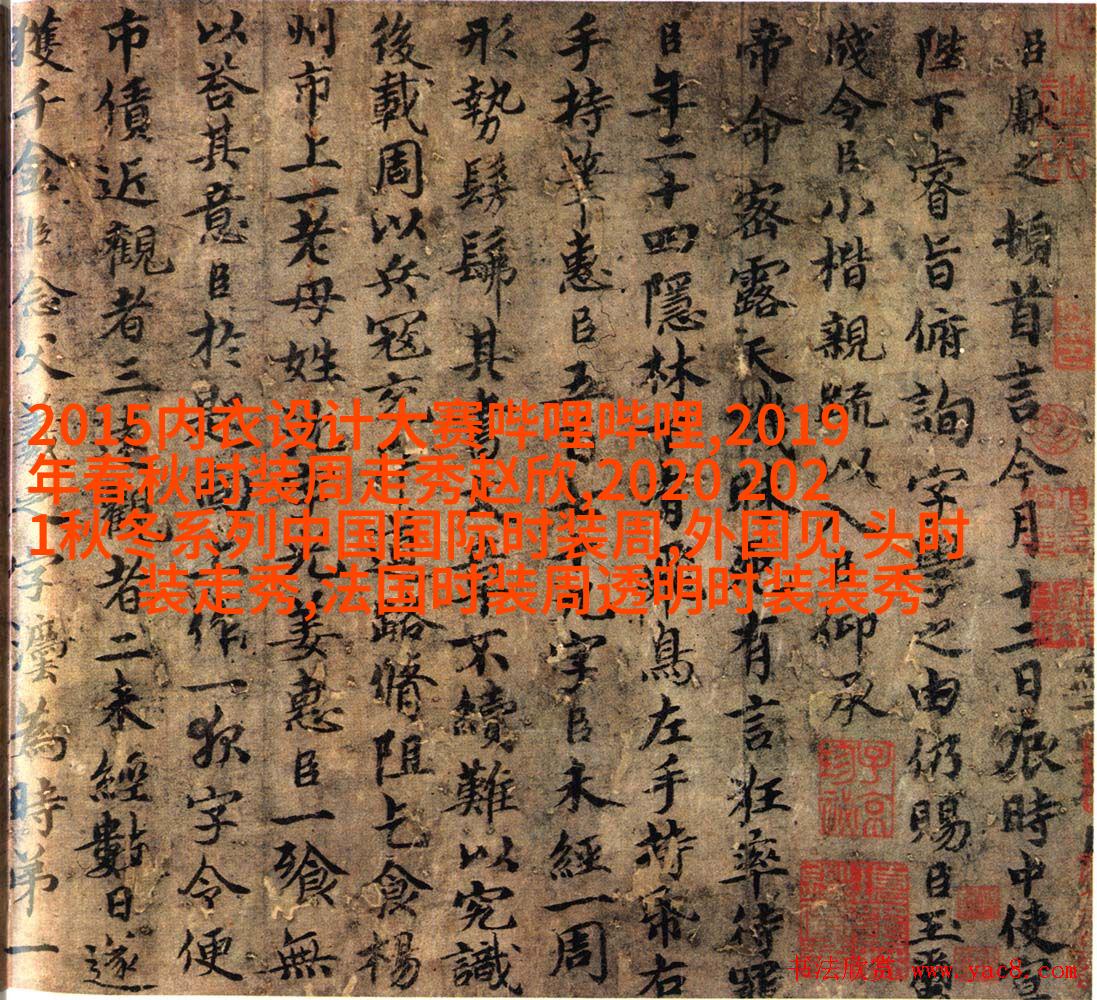 臣獻之頓首言今月十三日辰時中使宣
陛下睿旨俯詢字學之由仍賜臣玉
成今臣小楷親疏以入臣仰承
帝命密露天機有言言狂率待罪
臣年二十四隱林鳥左手持帋右
手持筆惠臣五字臣未經一周
形勢髣髴其書不續難以究識
後載周以兵寇充路脩阻乞食楊
州市上一老母姓光姜惠臣一飱無
以荅其意臣於面上作一夜字令便
市債近觀者三遠觀者二未經數日遂
獲千金臣念父羲之字為時第一
2015内衣设计大赛哔哩哔哩,2019
年春秋时装周走秀赵欣,2020 202
1秋冬系列中国国际时装周,外国见 头时
装走秀,法国时装周透明时装装秀
书法欣赏 www.yac8.com